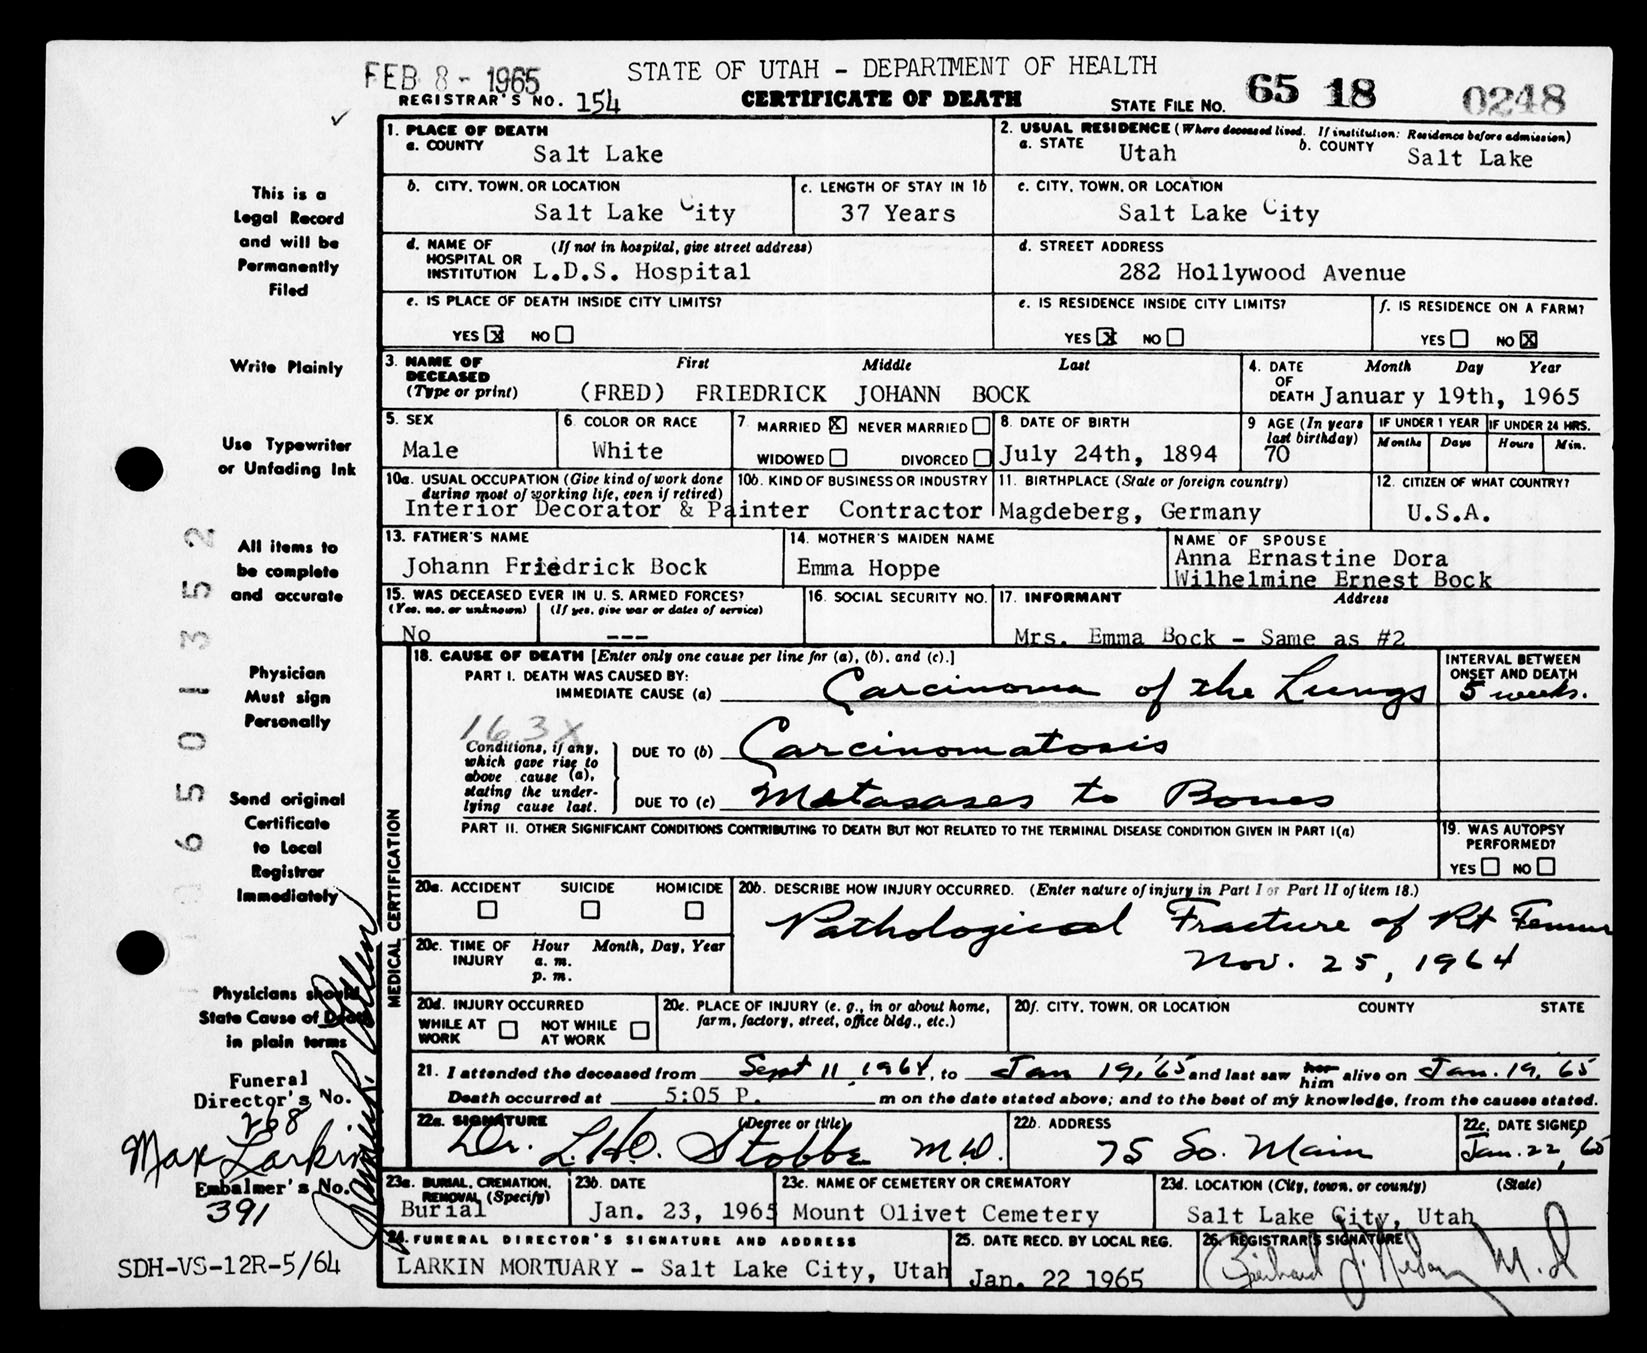 FEB 8 - 1965
STATE OF UTAH - DEPARTMENT OF HEALTH
REGISTRAR'S NO. 154
CERTIFICATE OF DEATH
STATE FILE NO. 65 18 0248
1. PLACE OF DEATH
a. COUNTY Salt Lake
2. USUAL RESIDENCE (Where deceased lived. If institution: Residence before admission)
a. STATE Utah
b. COUNTY Salt Lake
b. CITY, TOWN, OR LOCATION
Salt Lake City
c. LENGTH OF STAY IN 1b
37 Years
c. CITY, TOWN, OR LOCATION
Salt Lake City
d. NAME OF HOSPITAL OR INSTITUTION (If not in hospital, give street address)
L.D.S. Hospital
d. STREET ADDRESS
282 Hollywood Avenue
e. IS PLACE OF DEATH INSIDE CITY LIMITS?
YES X NO
e. IS RESIDENCE INSIDE CITY LIMITS?
YES X NO
f. IS RESIDENCE ON A FARM?
YES NO X
3. NAME OF DECEASED (Type or print)
First Middle Last
(FRED) FRIEDRICK JOHANN BOCK
4. DATE OF DEATH
Month Day Year
January 19th, 1965
5. SEX
Male
6 COLOR OR RACE
White
7 MARRIED X NEVER MARRIED
WIDOWED DIVORCED
8. DATE OF BIRTH
July 24th, 1894
9 AGE (In years last birthday)
70
IF UNDER 1 YEAR
Months Days
IF UNDER 24 HRS.
Hours Min.
10a. USUAL OCCUPATION (Give kind of work done during most of working life, even if retired)
Interior Decorator & Painter
10b. KIND OF BUSINESS OR INDUSTRY
Contractor
11. BIRTHPLACE (State or foreign country)
Magdeberg, Germany
12. CITIZEN OF WHAT COUNTRY?
U.S.A.
13. FATHER'S NAME
Johann Friedrick Bock
14. MOTHER'S MAIDEN NAME
Emma Hoppe
NAME OF SPOUSE
Anna Ernastine Dora
Wilhelmine Ernest Bock
15. WAS DECEASED EVER IN U. S. ARMED FORCES?
(Yes, no, or unknown) (If yes, give war or dates of service)
No ---
16. SOCIAL SECURITY NO.
17. INFORMANT Address
Mrs. Emma Bock - Same as #2
MEDICAL CERTIFICATION
18. CAUSE OF DEATH [Enter only one cause per line for (a), (b), and (c).]
PART I. DEATH WAS CAUSED BY:
IMMEDIATE CAUSE (a) Carcinoma of the Lungs
INTERVAL BETWEEN ONSET AND DEATH
5 weeks.
163X
Conditions, if any, which gave rise to above cause (a), stating the underlying cause last.
DUE TO (b) Carcinomatosis
DUE TO (c) Matasases to Bones
PART II. OTHER SIGNIFICANT CONDITIONS CONTRIBUTING TO DEATH BUT NOT RELATED TO THE TERMINAL DISEASE CONDITION GIVEN IN PART I(a)
19. WAS AUTOPSY PERFORMED?
YES NO
20a. ACCIDENT SUICIDE HOMICIDE
20b. DESCRIBE HOW INJURY OCCURRED. (Enter nature of injury in Part I or Part II of item 18.)
Pathological Fracture of Rt Femur
Nov. 25, 1964
20c. TIME OF INJURY
Hour Month, Day, Year
a. m.
p. m.
20d. INJURY OCCURRED
WHILE AT WORK NOT WHILE AT WORK
20e. PLACE OF INJURY (e. g., in or about home, farm, factory, street, office bldg., etc.)
20f. CITY, TOWN, OR LOCATION COUNTY STATE
21. I attended the deceased from Sept 11, 1964, to Jan 19, '65 and last saw her him alive on Jan. 19, 65
Death occurred at 5:05 P. m on the date stated above; and to the best of my knowledge, from the causes stated.
22a. SIGNATURE (Degree or title)
Dr. L.H.O. Stobbe M.D.
22b. ADDRESS
75 So. Main
22c. DATE SIGNED
Jan. 22, 65
23a. BURIAL, CREMATION, REMOVAL (Specify)
Burial
23b. DATE
Jan. 23, 1965
23c. NAME OF CEMETERY OR CREMATORY
Mount Olivet Cemetery
23d. LOCATION (City, town, or county) (State)
Salt Lake City, Utah
24. FUNERAL DIRECTOR'S SIGNATURE AND ADDRESS
LARKIN MORTUARY - Salt Lake City, Utah
25. DATE RECD. BY LOCAL REG.
Jan. 22 1965
26. REGISTRAR'S SIGNATURE
M.D
This is a
Legal Record
and will be
Permanently
Filed
Write Plainly
Use Typewriter
or Unfading Ink
All items to
be complete
and accurate
Physician
Must sign
Personally
Send original
Certificate
to Local
Registrar
Immediately
Physicians should
State Cause of Death
in plain terms
Funeral
Director's No.
268
Max Larkin
Embalmer's No.
391
SDH-VS-12R-5/64
6501352